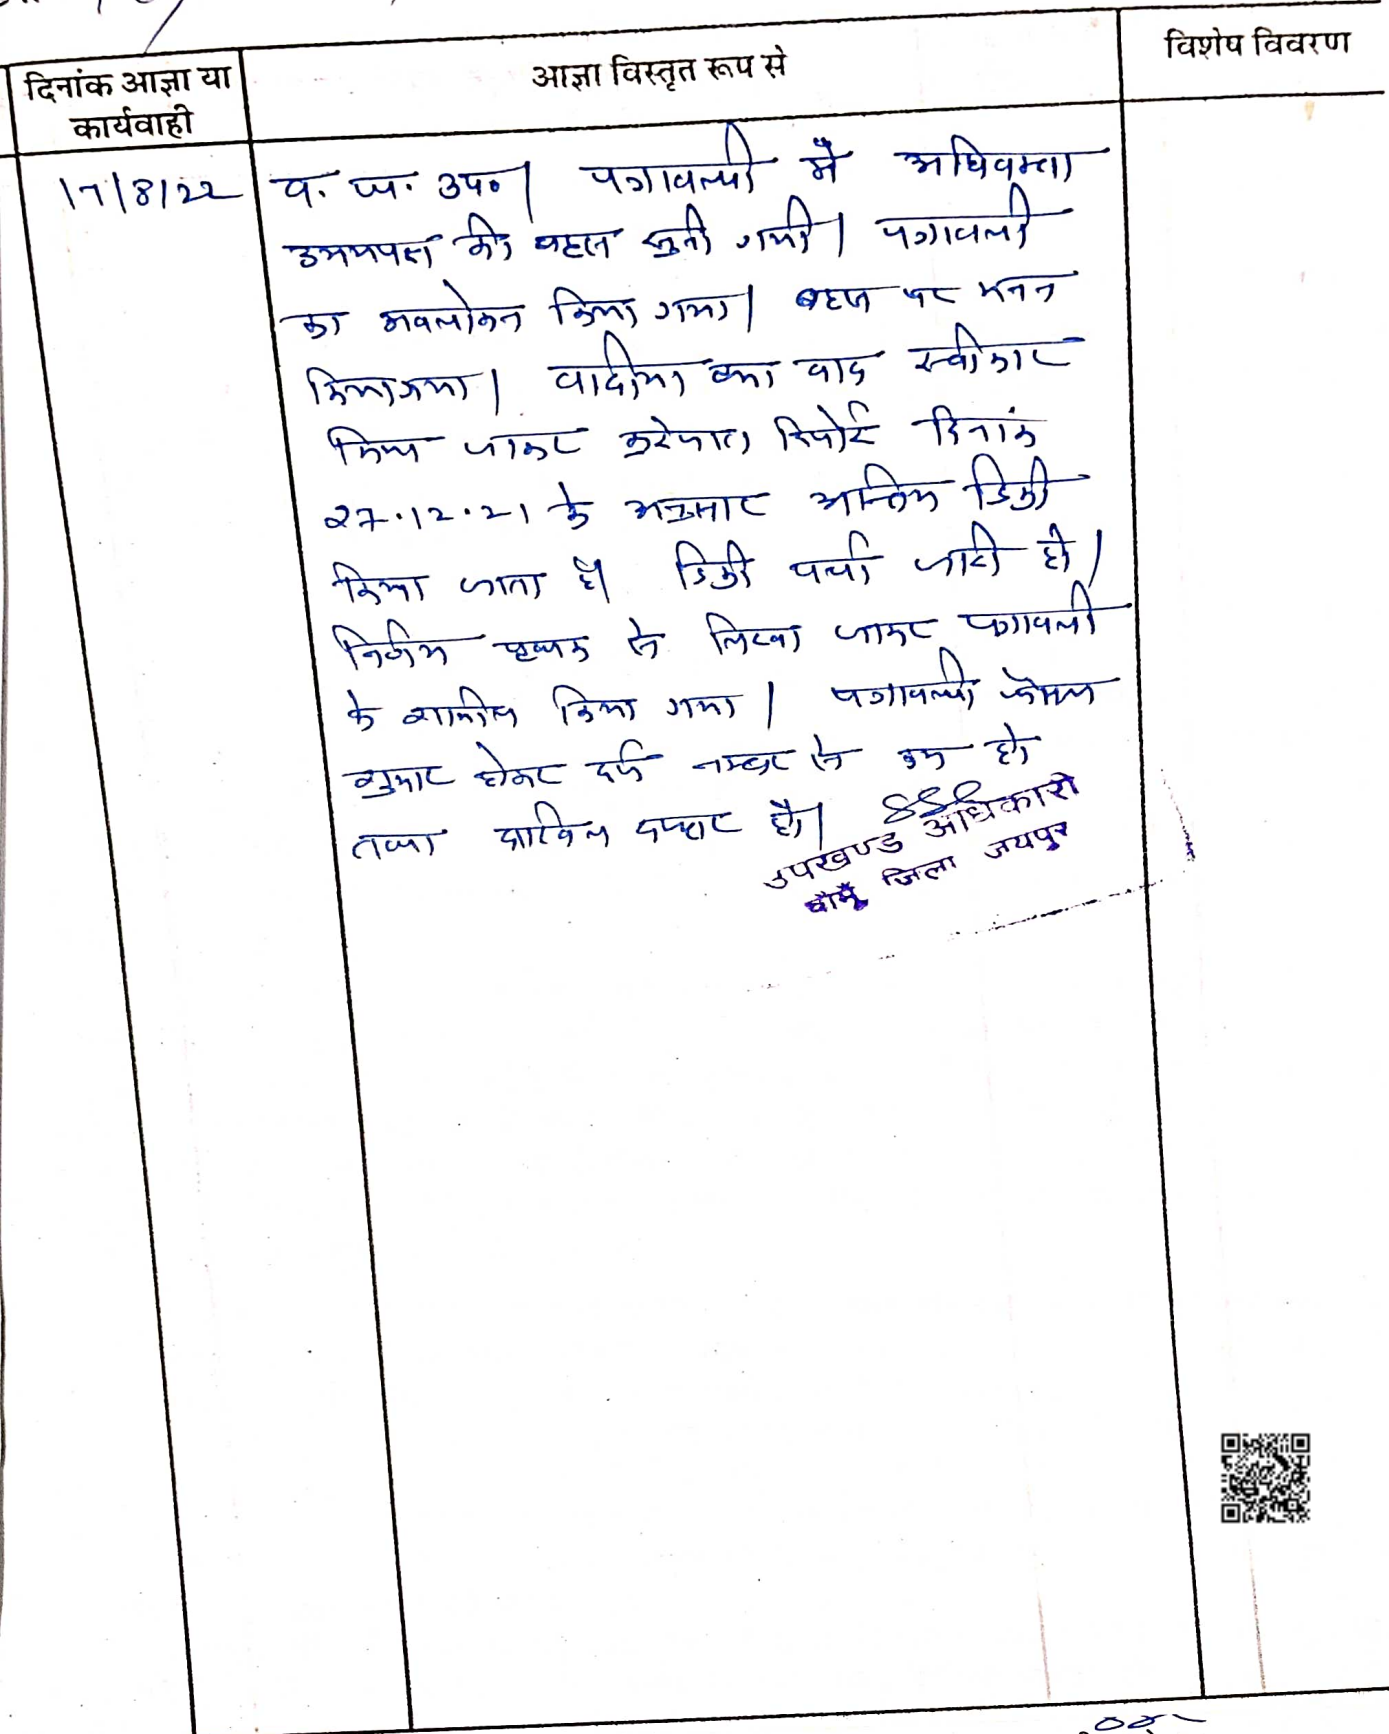 दिनांक आज्ञा या
कार्यवाही
आज्ञा विस्तृत रूप से
विशेष विवरण
17/8/22
व. प. उप०। पत्रावली में अधिवक्ता
उभयपक्ष की बहस सुनी गयी। पत्रावली
का अवलोकन किया गया। बहस पर मनन
किया गया। वादीया का वाद स्वीकार
किया जाकर कुरेजात रिपोर्ट दिनांक
27.12.21 के अनुसार अन्तिम डिक्री
किया जाता है। डिक्री पर्चा जारी हो।
निर्णय पृथक से लिखा जाकर पत्रावली
के शामील किया गया। पत्रावली फैसल
शुमार होकर दर्ज नम्बर से कम हो
तथा दाखिल दफ्तर हो।
उपखण्ड अधिकारी
चौमूँ जिला जयपुर